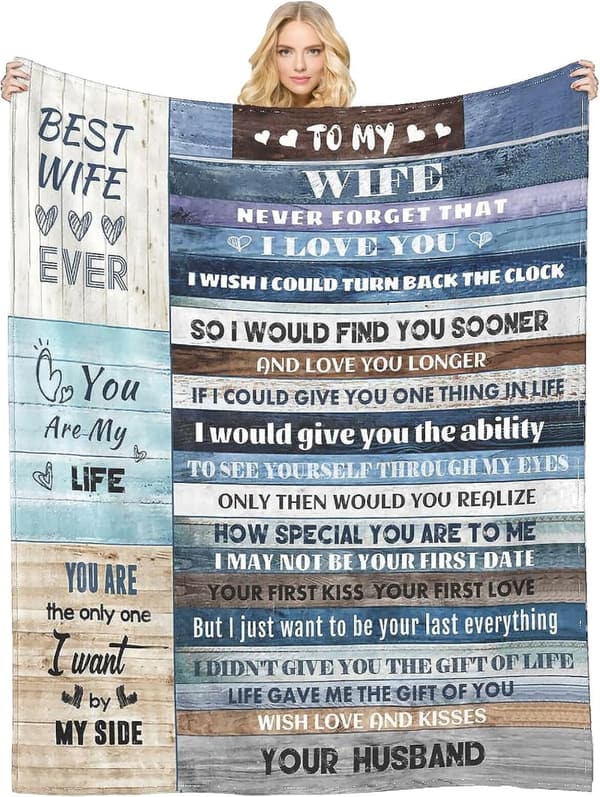 BEST
WIFE
EVER
You
Are My
LIFE
YOU ARE
the only one
I want
by
MY SIDE
TO MY
WIFE
NEVER FORGET THAT
I LOVE YOU
I WISH I COULD TURN BACK THE CLOCK
SO I WOULD FIND YOU SOONER
AND LOVE YOU LONGER
IF I COULD GIVE YOU ONE THING IN LIFE
I would give you the ability
TO SEE YOURSELF THROUGH MY EYES
ONLY THEN WOULD YOU REALIZE
HOW SPECIAL YOU ARE TO ME
I MAY NOT BE YOUR FIRST DATE
YOUR FIRST KISS YOUR FIRST LOVE
But I just want to be your last everything
I DIDN'T GIVE YOU THE GIFT OF LIFE
LIFE GAVE ME THE GIFT OF YOU
WISH LOVE AND KISSES
YOUR HUSBAND